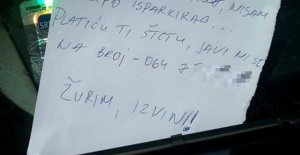 ISPARKIRAO..., NISAM
PLATIĆU TI ŠTETU, JAVI MI SE
NA BROJ - 064 7
ŽURIM, IZVINI!!